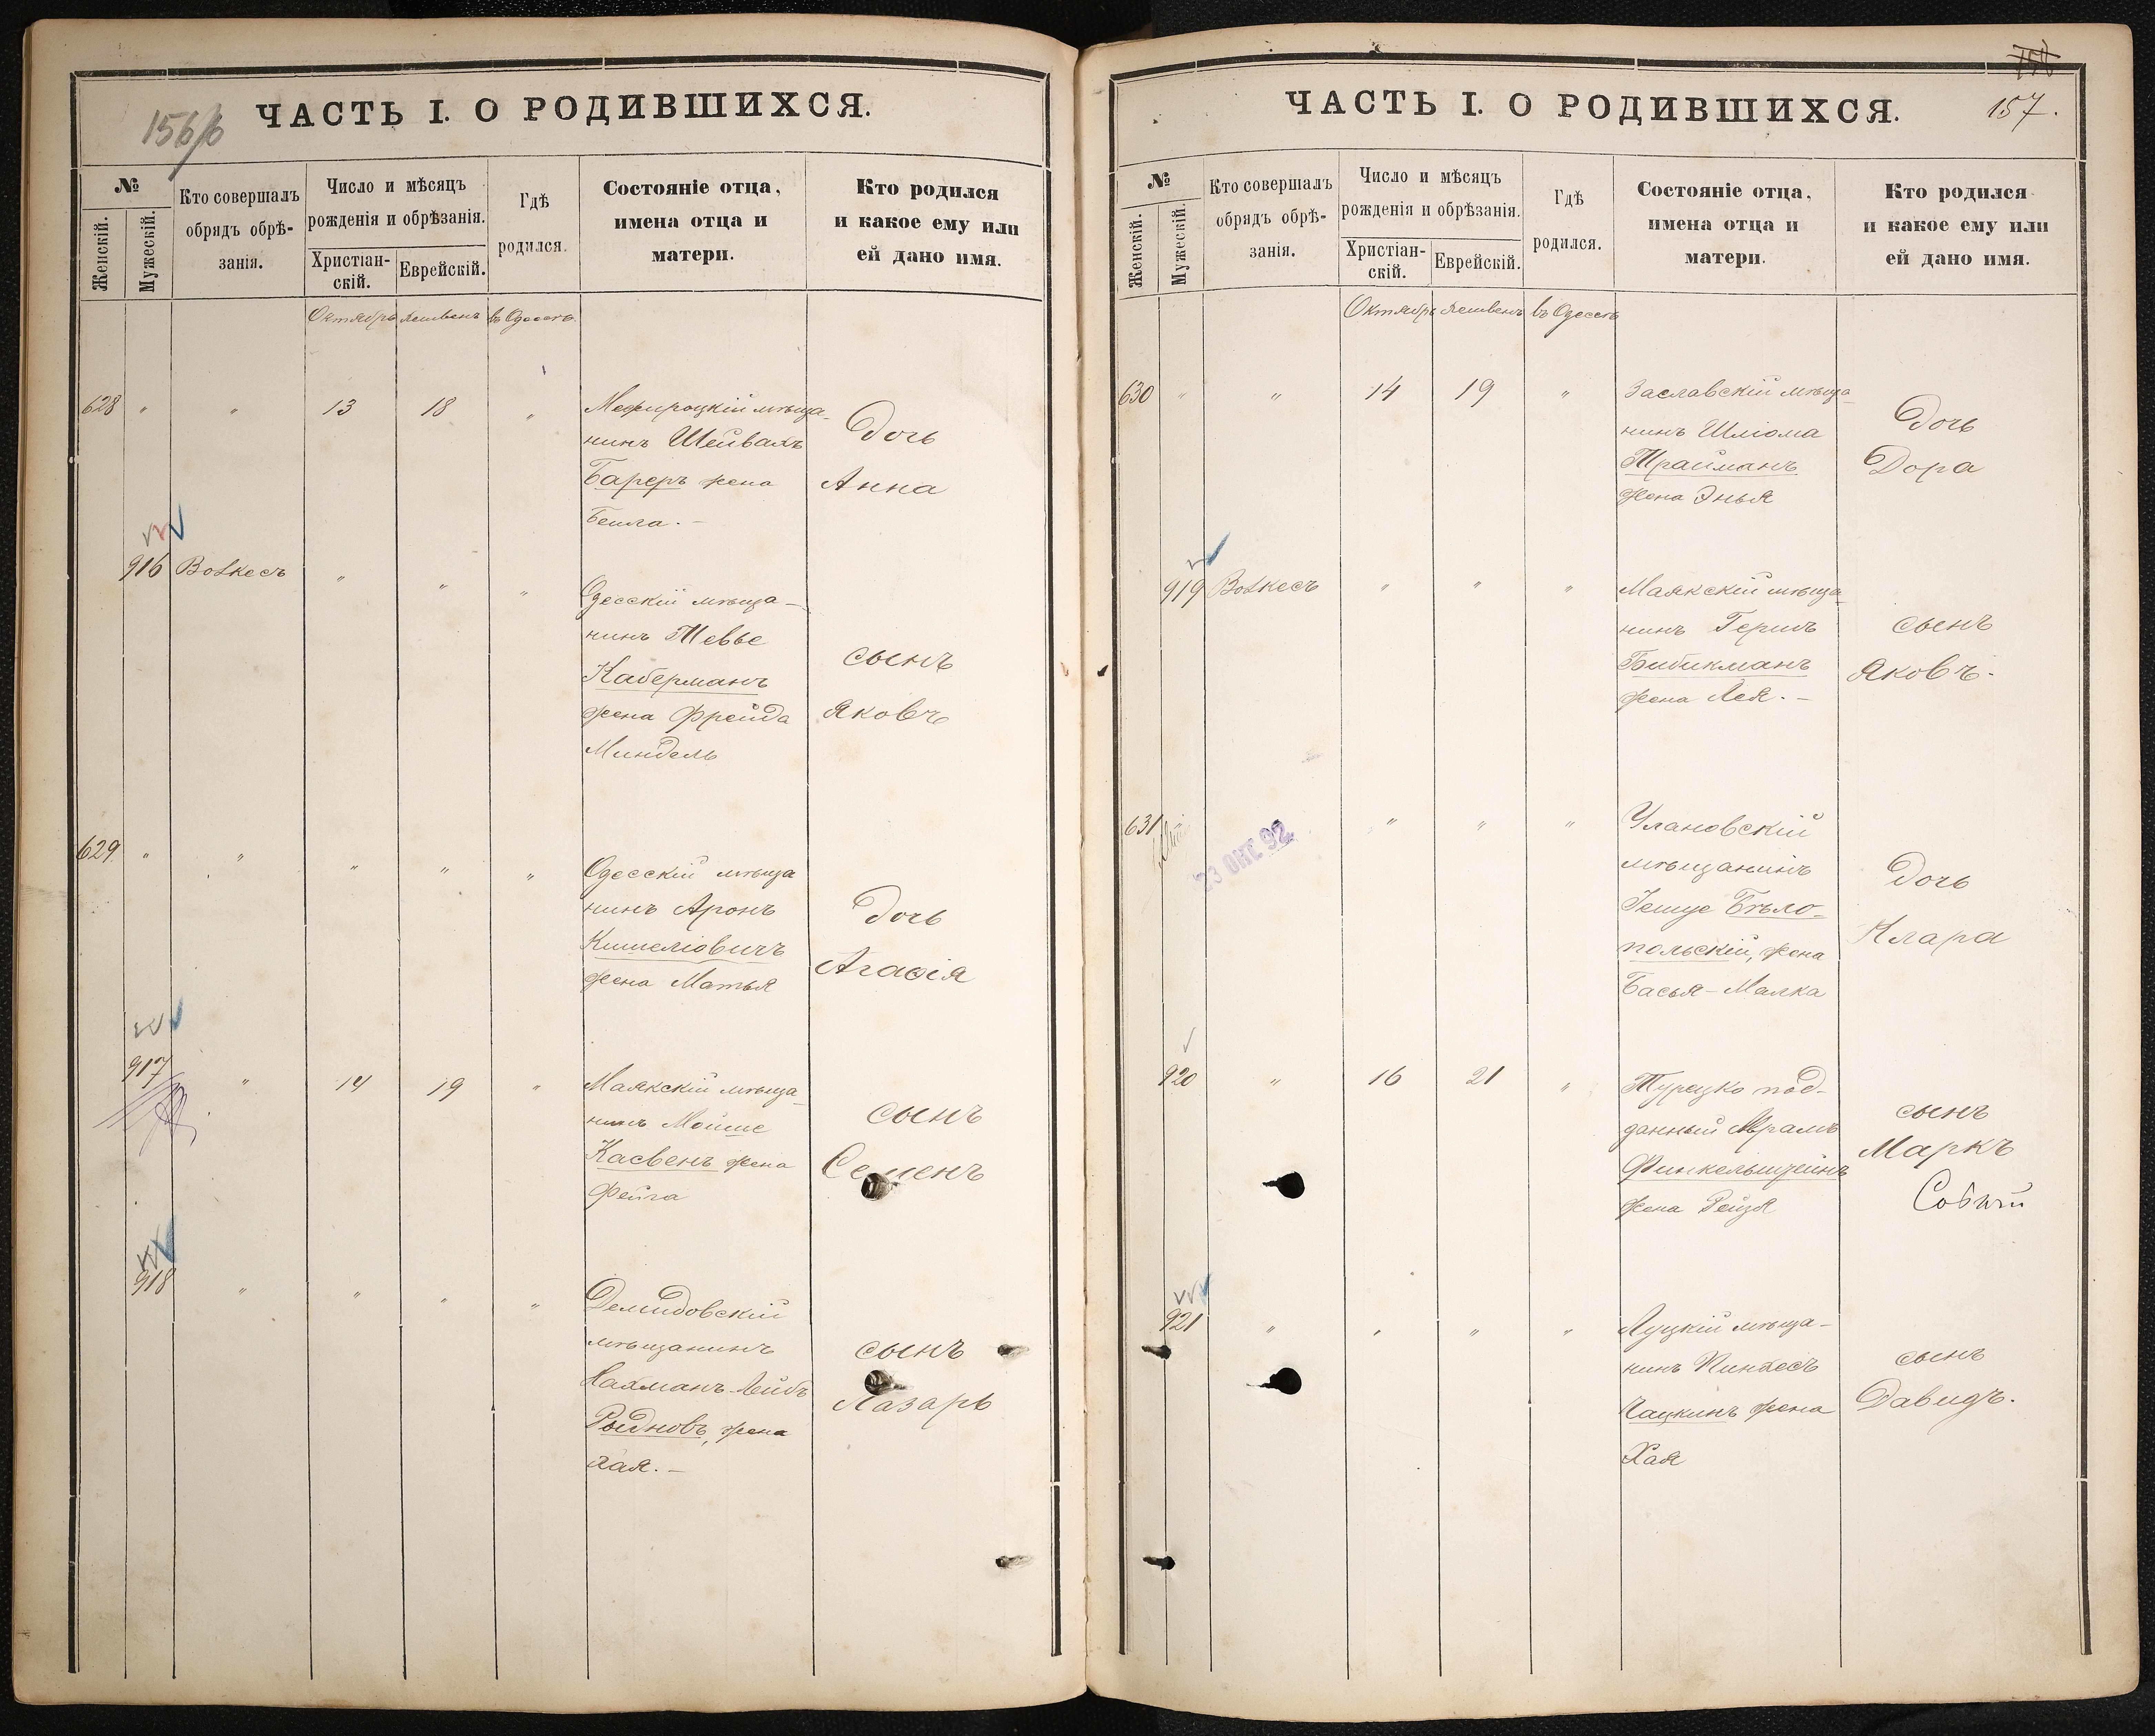 156/б
ЧАСТЬ I. О РОДИВШИХСЯ.
№
Женскій.
Мужескій.
Кто совершалъ
обрядъ обрѣ-
занія.
Число и мѣсяцъ
рожденія и обрѣзанія.
Христіан-
скій.
Еврейскій.
Гдѣ
родился.
Состояніе отца,
имена отца и
матери.
Кто родился
и какое ему или
ей дано имя.
Октябрь Хешвенъ въ Одессѣ
628 " " 13 18 "
мѣща-
нинъ Шейвахъ
Бареръ жена
Бейла. –
Дочь
Анна
916 Волкесъ " " "
Одесскій мѣща-
нинъ Тевье
Каберманъ
жена Фрейда
Миндель
сынъ
Яковъ
629 " " " " "
Одесскій мѣща
нинъ Аронъ
Кишеліовичъ
жена Матья
Дочь
Агафія
917 " 14 19 "
Маякскій мѣща-
нинъ Мойше
Касвенъ жена
Фейга
сынъ
Семенъ
918 " " " "
Демидовскій
мѣщанинъ
Нахманъ-Лейбъ
Рыдновъ, жена
Хая. –
сынъ
Лазарь
157.
ЧАСТЬ I. О РОДИВШИХСЯ.
№
Женскій.
Мужескій.
Кто совершалъ
обрядъ обрѣ-
занія.
Число и мѣсяцъ
рожденія и обрѣзанія.
Христіан-
скій.
Еврейскій.
Гдѣ
родился.
Состояніе отца,
имена отца и
матери.
Кто родился
и какое ему или
ей дано имя.
Октябрь Хешвенъ въ Одессѣ
630 " " 14 19 "
Заславскій мѣща-
нинъ Шліома
Трайманъ
жена Энья
Дочь
Дора
919 Волкесъ " " "
Маякскій мѣща-
нинъ Гершъ
Бибикманъ
жена Лея. –
сынъ
Яковъ.
631 " " " "
23 ОКТ. 92
Улановскій
мѣщанинъ
Іешуе Бѣло-
польскій, жена
Басья-Малка
Дочь
Клара
920 " 16 21 "
Турецко под-
данный Аврамъ
Финкельштейнъ
жена Рейзя
сынъ
Маркъ
921 " " " "
Луцкій мѣща-
нинъ Пинхесъ
Чацкинъ жена
Хая
сынъ
Давидъ.